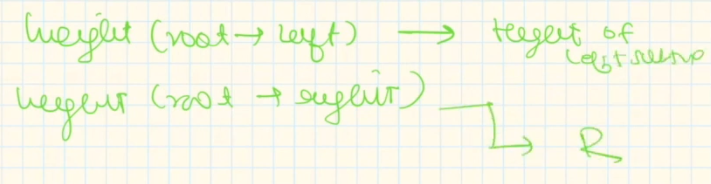 height (root → left) → Height of left subtree
height (root → right) → R